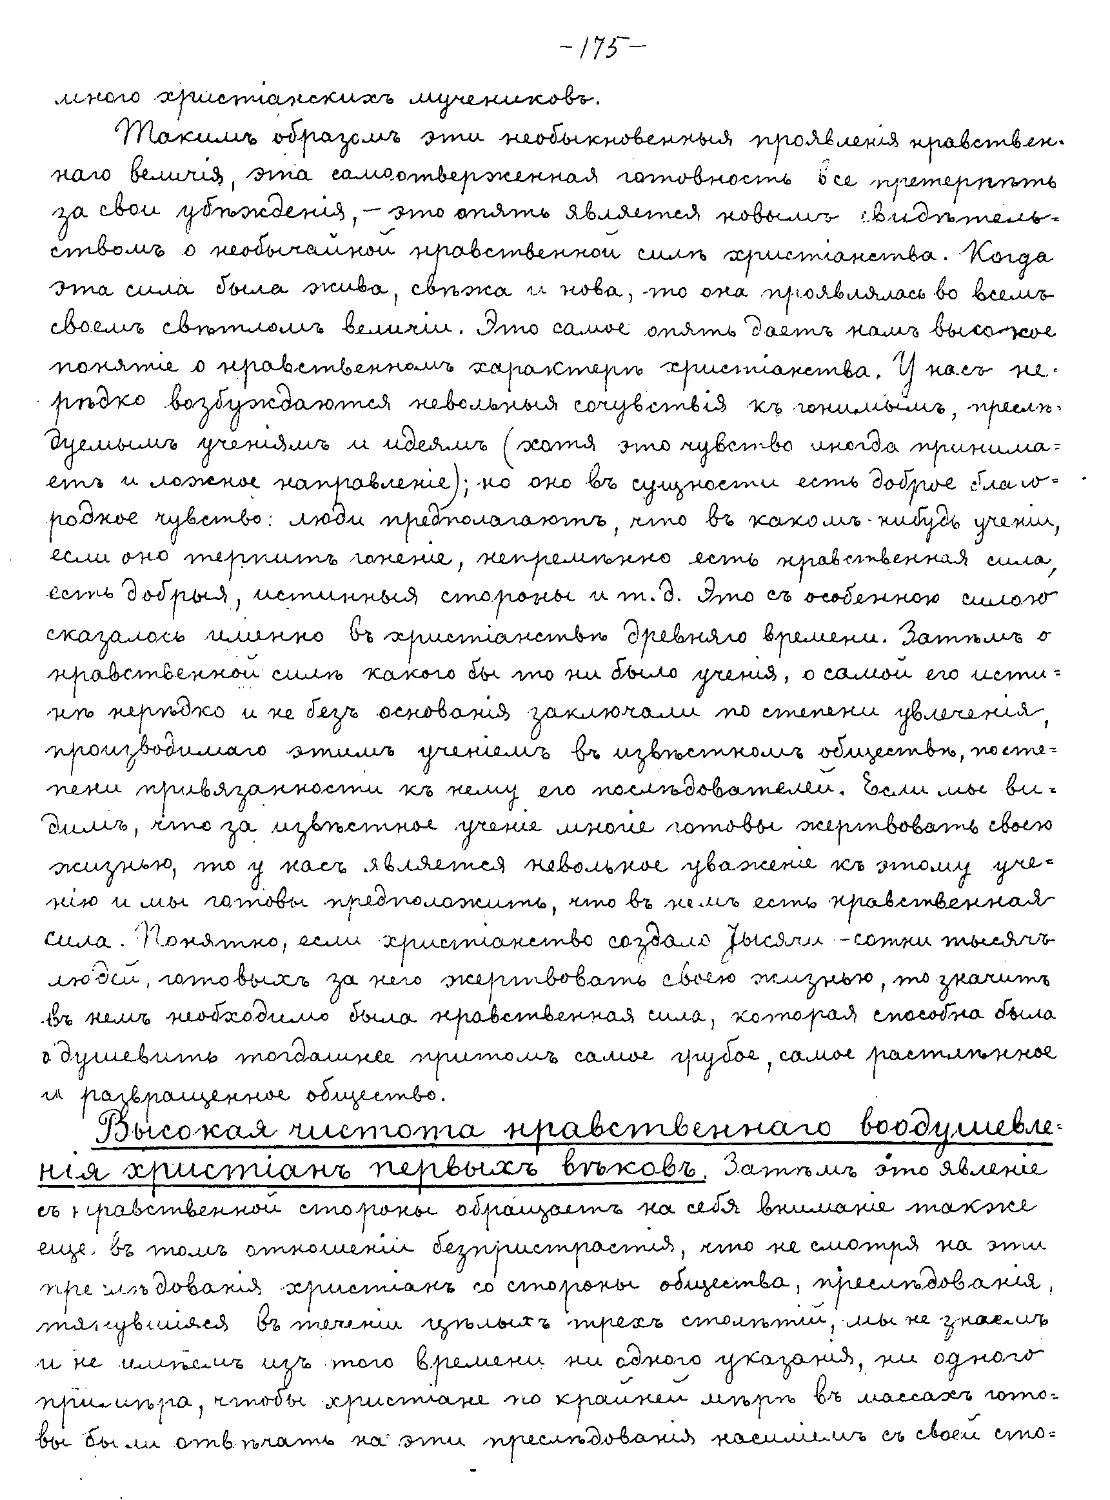 -175-
много христіанскихъ мучениковъ.
Такимъ образомъ эти необыкновенныя проявленія нравствен-
наго величія, эта самоотверженная готовность все претерпѣть
за свои убѣжденія, – это опять является новымъ свидѣтель=
ствомъ о необычайной нравственной силѣ христіанства. Когда
эта сила была жива, свѣжа и нова, -то она проявлялась во всемъ
своемъ свѣтломъ величіи. Это самое опять даетъ намъ высокое
понятіе о нравственномъ характерѣ христіанства. У насъ не-
рѣдко возбуждаются невольныя сочувствія къ гонимымъ, преслѣ-
дуемымъ ученіямъ и идеямъ (хотя это чувство иногда принима=
етъ и ложное направленіе); но оно въ сущности есть доброе благо=
родное чувство: люди предполагаютъ, что въ какомъ-нибудь ученіи,
если оно терпитъ гоненіе, непремѣнно есть нравственная сила,
есть добрыя, истинныя стороны и т.д. Это съ особенною силою
сказалось именно въ христіанствѣ древняго времени. Затѣмъ о
нравственной силѣ какого бы то ни было ученія, о самой его исти=
нѣ нерѣдко и не безъ основанія заключали по степени увлеченія,
производимаго этимъ ученіемъ въ извѣстномъ обществѣ, по сте=
пени привязанности къ нему его послѣдователей. Если мы ви=
димъ, что за извѣстное ученіе многіе готовы жертвовать своею
жизнью, то у насъ является невольное уваженіе къ этому уче=
нію и мы готовы предположить, что въ немъ есть нравственная
сила. Понятно, если христіанство создало тысячи -сотни тысячъ
людей, готовыхъ за него жертвовать своею жизнью, то значитъ
въ немъ необходимо была нравственная сила, которая способна была
одушевить тогдашнее притомъ самое грубое, самое растлѣнное
и развращенное общество.
Высокая чистота нравственнаго воодушевле=
нія христіанъ первыхъ вѣковъ. Затѣмъ это явленіе
съ нравственной стороны обращаетъ на себя вниманіе также
еще въ томъ отношеніи безпристрастія, что не смотря на эти
преслѣдованія христіанъ со стороны общества, преслѣдованія,
тянувшіяся въ теченіи цѣлыхъ трехъ столѣтій, мы не знаемъ
и не имѣемъ изъ того времени ни одного указанія, ни одного
примѣра, чтобы христіане по крайней мѣрѣ въ массахъ гото=
вы были отвѣчать на эти преслѣдованія насиліемъ съ своей сто=